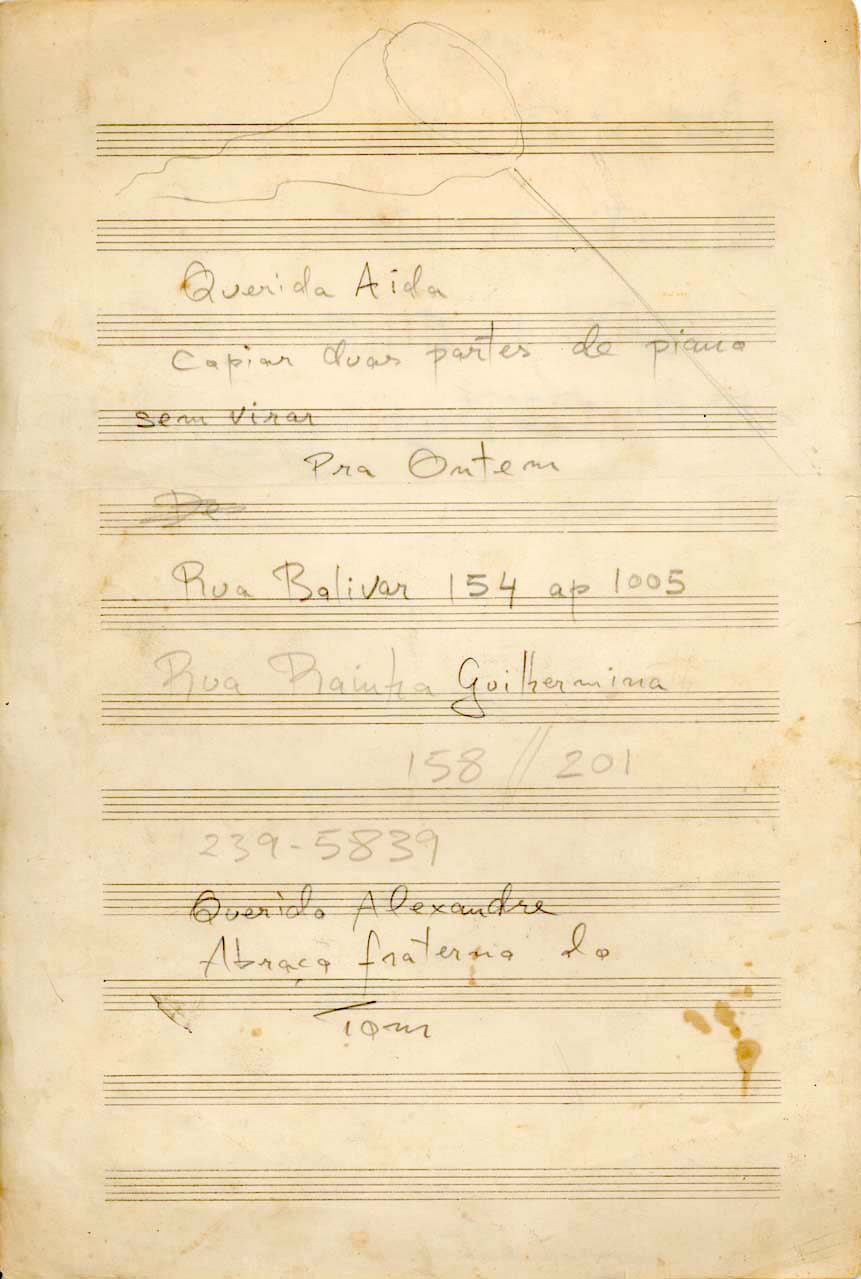 Querida Aida
Copiar duas partes de piano
sem virar
Pra Ontem
De
Rua Bolivar 154 ap 1005
Rua Rainha Guilhermina
158 // 201
239-5839
Querido Alexandre
Abraço fraterno do
Tom